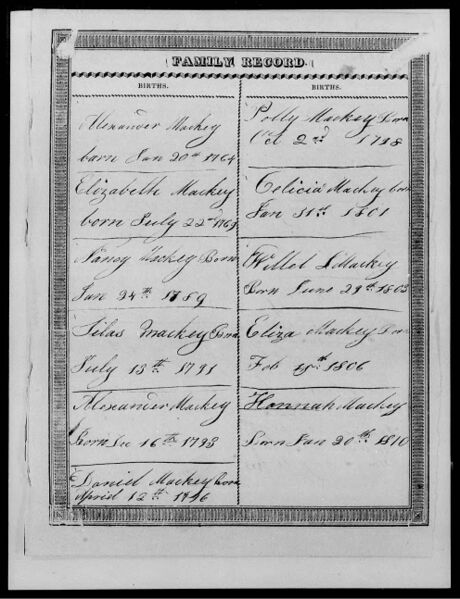 FAMILY RECORD.
BIRTHS.
Alexander Mackey
born Jan 20th 1764
Elizabeth Mackey
born July 22nd
Nancy Mackey Born
Jan 24th 1789
Silas Mackey Born
July 13th 1791
Alexander Mackey
Born Dec 16th 1793
Daniel Mackey born
Apriel 12th 1796
BIRTHS.
Polly Mackey Born
Oct 2nd 1798
Mackey born
Jan 31th 1801
Willet Mackey
Born June 29th 1803
Eliza Mackey Born
Feb 1806
Hannah Mackey
Born Jan 20th 1810